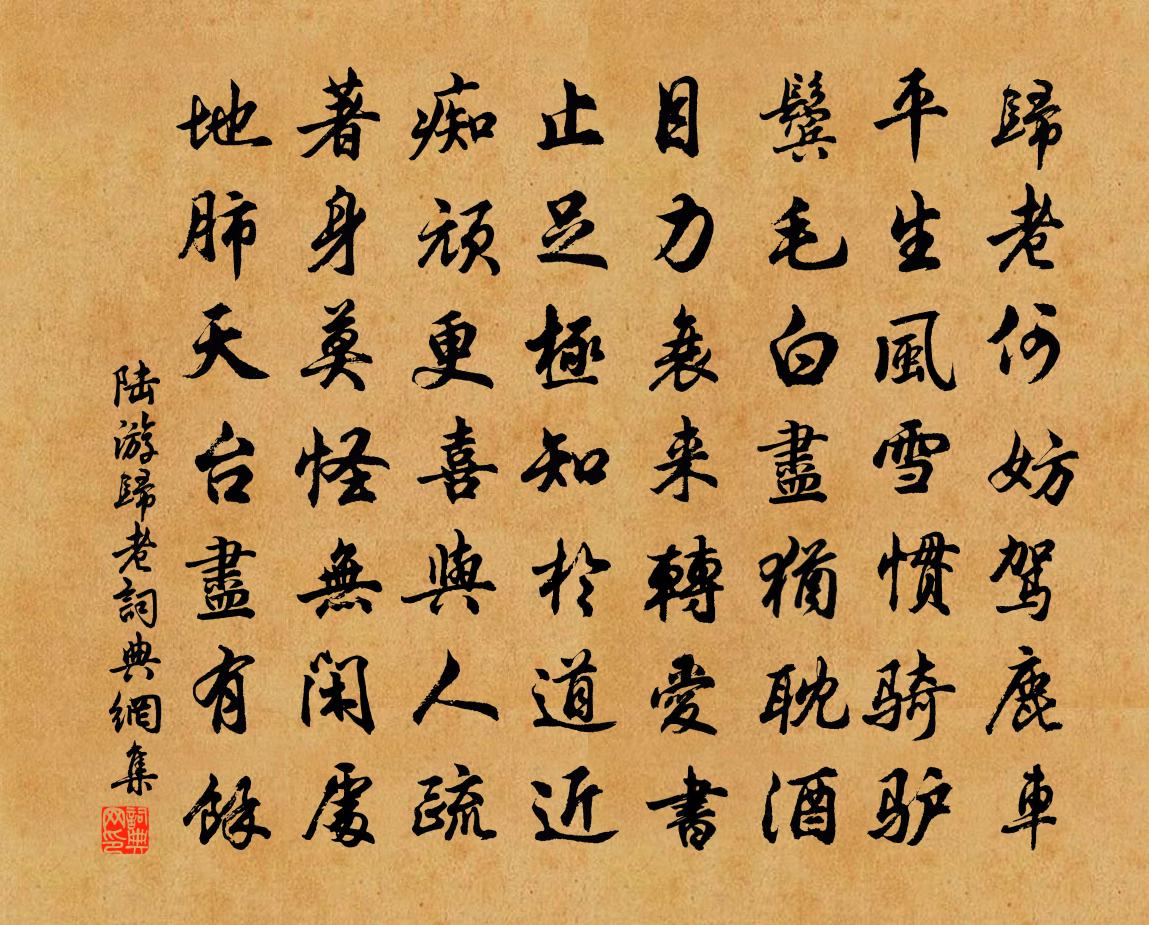 歸老何妨駕鹿車
平生風雪慣騎驴
鬢毛白盡猶耽酒
目力衰来轉愛書
止足極知於道近
痴頑更喜與人疏
著身莫怪無閑處
地肺天台盡有餘
陸游歸老詞典網集
詞典网印